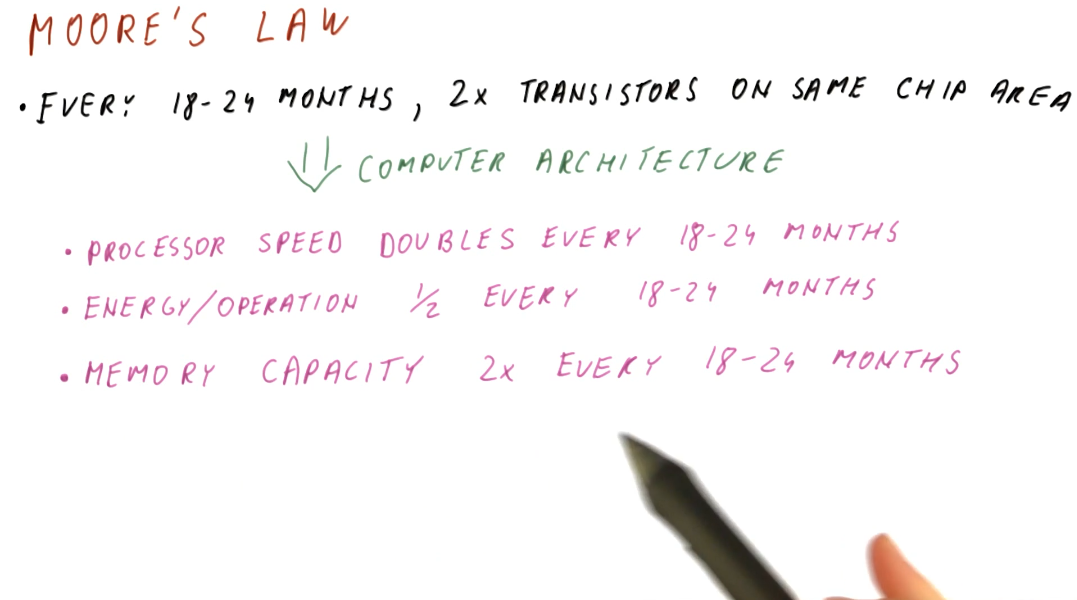 MOORE'S LAW
• EVERY 18-24 MONTHS, 2x TRANSISTORS ON SAME CHIP AREA
COMPUTER ARCHITECTURE
• PROCESSOR SPEED DOUBLES EVERY 18-24 MONTHS
• ENERGY/OPERATION 1/2 EVERY 18-24 MONTHS
• MEMORY CAPACITY 2x EVERY 18-24 MONTHS